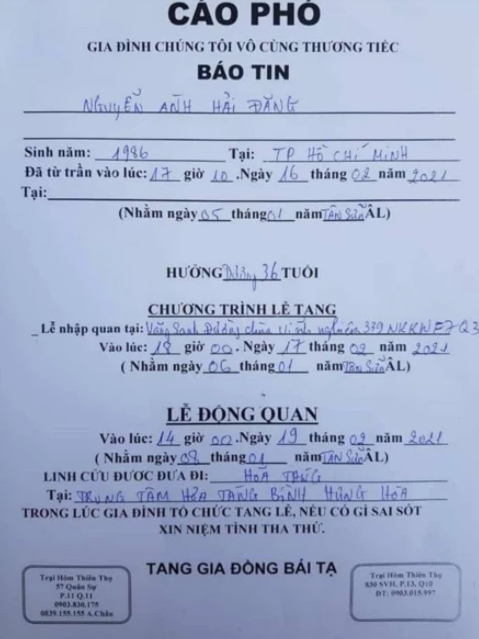 CÁO PHÓ
GIA ĐÌNH CHÚNG TÔI VÔ CÙNG THƯƠNG TIẾC
BÁO TIN
NGUYỄN ANH HẢI ĐĂNG
Sinh năm: 1986 Tại: TP HỒ CHÍ MINH
Đã từ trần vào lúc: 17 giờ 10. Ngày 16 tháng 02 năm 2021
Tại:
(Nhằm ngày 05 tháng 01 năm TÂN SỬU ÂL)
HƯỞNG Dương 36 TUỔI
CHƯƠNG TRÌNH LỄ TANG
Lễ nhập quan tại: Vãng Sanh Đường chùa Vĩnh nghiêm 339 NKKN F7 Q3
Vào lúc: 18 giờ 00. Ngày 17 tháng 02 năm 2021
( Nhằm ngày 06 tháng 01 năm TÂN SỬU ÂL)
LỄ ĐỘNG QUAN
Vào lúc: 14 giờ 00. Ngày 19 tháng 02 năm 2021
( Nhằm ngày 08 tháng 01 năm TÂN SỬU ÂL)
LINH CỮU ĐƯỢC ĐƯA ĐI: HOẢ TÁNG
Tại: TRUNG TÂM HỎA TÁNG BÌNH HƯNG HÒA
TRONG LÚC GIA ĐÌNH TỔ CHỨC TANG LỄ, NẾU CÓ GÌ SAI SÓT
XIN NIỆM TÌNH THA THỨ.
TANG GIA ĐỒNG BÁI TẠ
Trại Hòm Thiên Thọ
57 Quân Sự
P.11 Q.11
0903.830.175
0839.155.155 A.Châu
Trại Hòm Thiên Thọ
830 SVH, P.13, Q10
ĐT: 0903.015.997